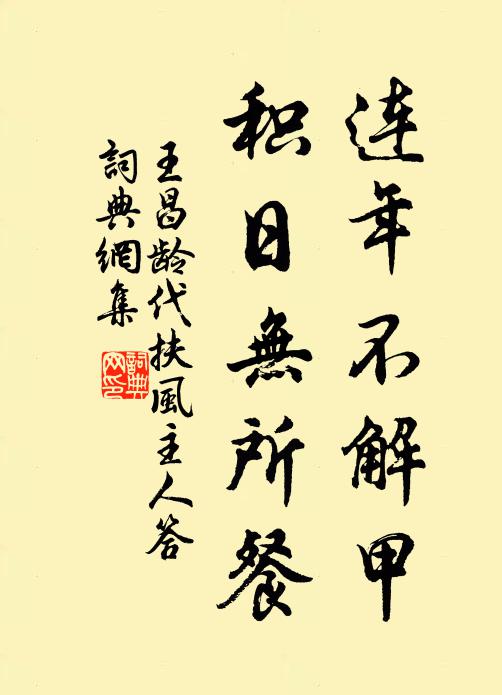 连年不解甲
积日無所餐
王昌龄代扶風主人答
詞典網集
詞典网印